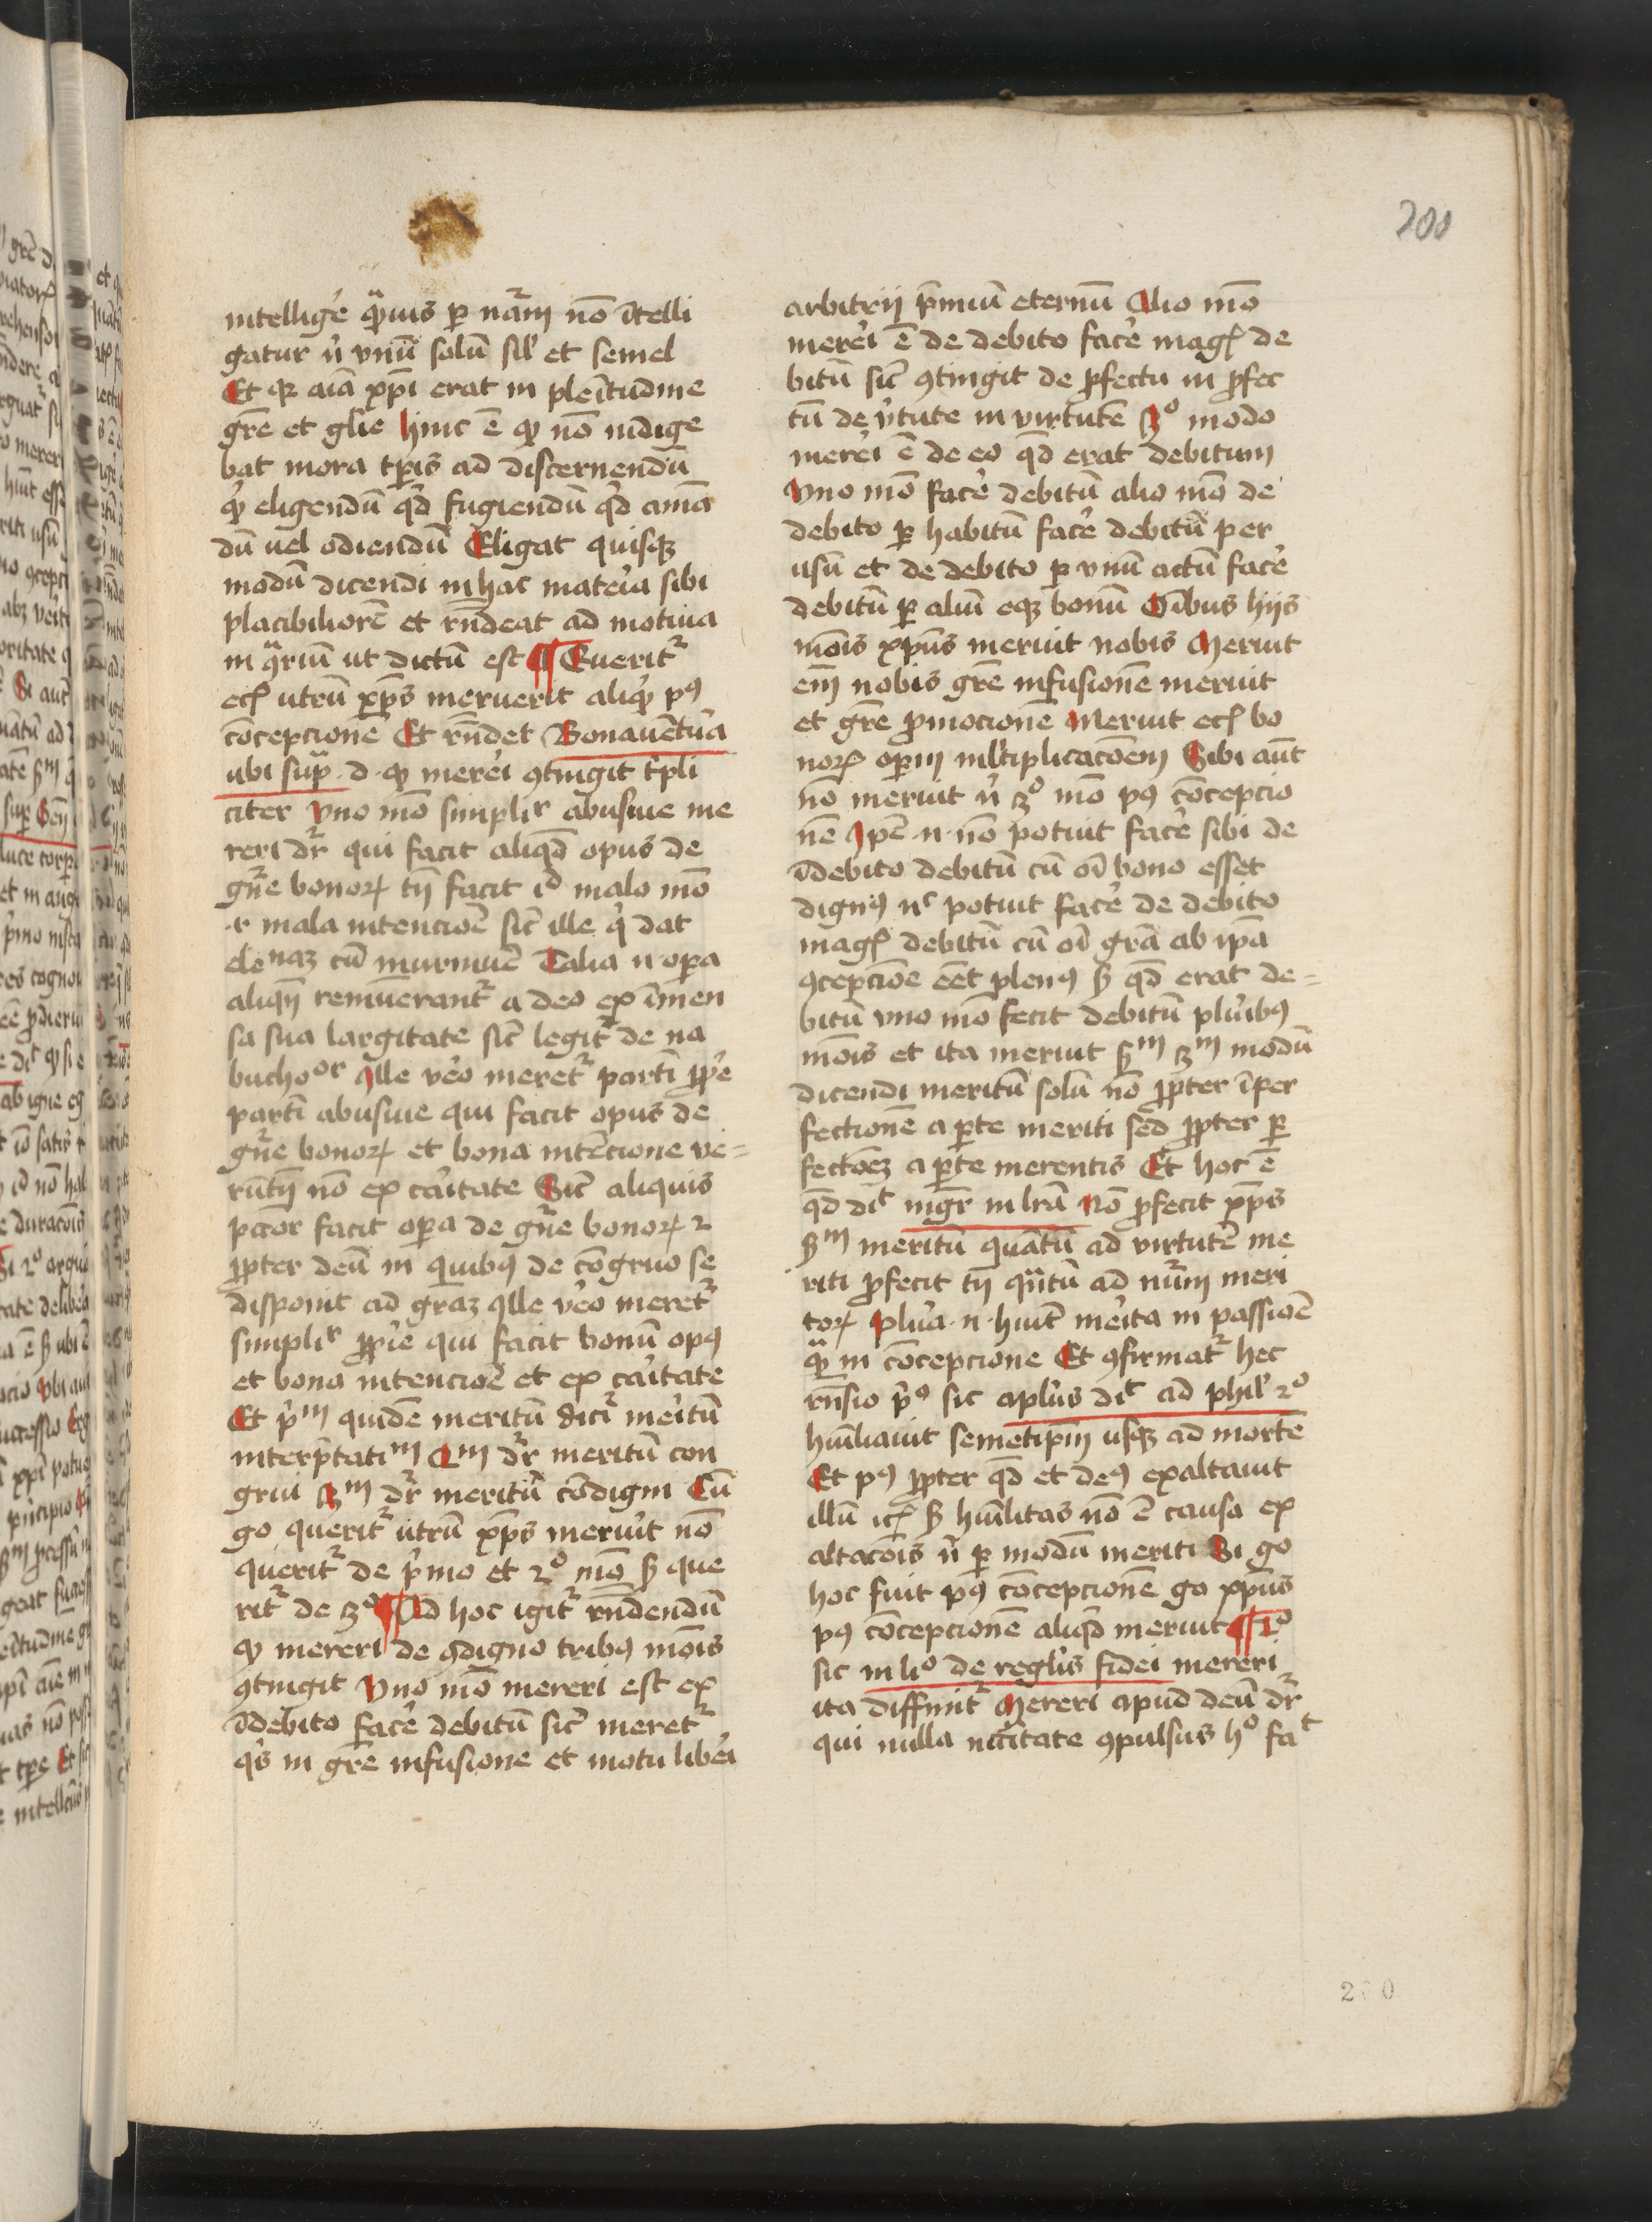 200
intellige᷑ qͣuis ꝑ nr̄aꝫ nō ītelli
gatur nͥ vnū solū sil' et semel
Et qꝛ aīa xp̄i erat in pleītudine
gr̄e et glīe hinc ē ꝙ nō indige
bat mora tꝑis ad discernendū
qͥd eligendū qͥd fugiendū qͥd amā
dū uel odiendū Eligat quisqꝫ
modū dicendi in hac mate᷑ia sibi
placibiliorē et rn̄deat ad motiua
in ꝯͣriū ut dictū est ¶ Querit᷑
ecꝭ utrū xp̄s meruerit aliqͥd pꝰ
cōcepcione Et rn̄det Bonauētu᷑a
ubi supͣ d ꝙ mere᷑i ꝯtingit tͥpli
citer Vno mō simplr̄ abusiue me
reri dr̄ qui facit aliqd̄ opus de
gn̄e bonoꝝ tn̄ facit id malo mō
⁊ mala intencioē sic̄ ille qͥ dat
elenaꝫ cū murmu᷑e Talia n̄ oꝑa
aliqn̄ remūerant᷑ a deo ex īmen
sa sua largitate sic̄ legit᷑ de na
buchoᵒʳ Ille ve᷑o meret᷑ partī ꝓpe᷑
partī abusiue qui facit opus de
gn̄e bonoꝝ et bona intēcione ve⸗
rūtn̄ nō ex ca᷑itate Sic̄ aliquis
pc̄tor facit oꝑa de gn̄e bonoꝝ ⁊
ꝓpter deū in quibꝰ de cōgruo se
disponit ad gr̄aꝫ Ille ve᷑o meret᷑
simplr̄ ꝓpie᷑ qui facit bonū opꝰ
et bona intencioē et ex ca᷑itate
Et pͥᵐ quidē meritū dicit᷑ me᷑itū
interp̄tatiᵐ 2ᵐ dr̄ meritū con
grui 3ᵐ dr̄ meritū cōdigni Cū
go querit᷑ utrū xp̄s meruit nō
querit᷑ de pͥmo et 2º mō ꝫ que
rit᷑ de 3º ¶ Ad hoc igit᷑ rn̄dendū
ꝙ mereri de ꝯdigno tribꝰ mōis
ꝯtingit Vno mō mereri est ex
īdebito face᷑ debitū sic̄ meret᷑
qͥs in gr̄e infusione et motu libe᷑i
arbitrij p̄miū eternū Alio mō
mere᷑i ē de debito face᷑ magꝭ de
bitū sic̄ ꝯtingit de ꝓfectu in ꝓfec
tū de v᷑tute in virtutē 3º modo
mere᷑i ē de eo qd̄ erat debitum
Vno mō face᷑ debitū alio mō de
debito ꝑ habitū face᷑ debitū per
usū et de debito ꝑ vnū actū face᷑
debitū ꝑ aliū eqꝫ bonū Oībus hijs
mōis xp̄us meruit nobis Meruit
em̄ nobis gr̄e infusionē meruit
et gr̄e ꝓmocionē Meruit ecꝭ bo
noꝝ oꝑm ml'tiplicacōem Sibi aūt
nō meruit nͥ 3º mō pꝰ cōcepcio
nē Ipē n̄ nō potuit face᷑ sibi de
īdebito debitū cū oī bono esset
dignꝰ nͨ potuit face᷑ de debito
magꝭ debitū cū oī gr̄a ab ip̄a
ꝯcepcione eēt plenꝰ ꝫ qd̄ erat de⸗
bitū vno mō fecit debitū plu᷑ibꝰ
mōis et ita meruit ẜᵐ 3ᵐ modū
dicendi meritū solū nō ꝓpter īper
fectionē a ꝑte meriti sed ꝓpter ꝑ
fectōeꝫ a ꝑte merentis Et hoc ē
qd̄ dīt mgr̄ in lr̄a Nō ꝓfecit xp̄s
ẜᵐ meritū quātū ad virtutē me
riti ꝓfecit tn̄ qͣntū ad nu᷑m meri
toꝝ Plu᷑a n̄ huit̄ me᷑ita in passioē
qͣꝫ in cōcepcione Et ꝯfirmat᷑ hec
rn̄sio pͥº sic apl'us dīt ad phil' 2º
huīliauit semetip̄m usqꝫ ad mortē
Et pꝰ ꝓpter qd̄ et deꝰ exaltauit
illū icꝭ ꝫ huīlitas nō ē causa ex
altacōis nͥ ꝑ modū meriti Si go
hoc fuit pꝰ cōcepcionē go xp̄us
pꝰ cōcepcionē aliqd̄ meruit ¶ 2º
sic in liº de regl'is fidei mereri
ita diffinit᷑ Mereri apud deū dr̄
qui nulla nccītate ꝯpulsus hº faᵗ
200